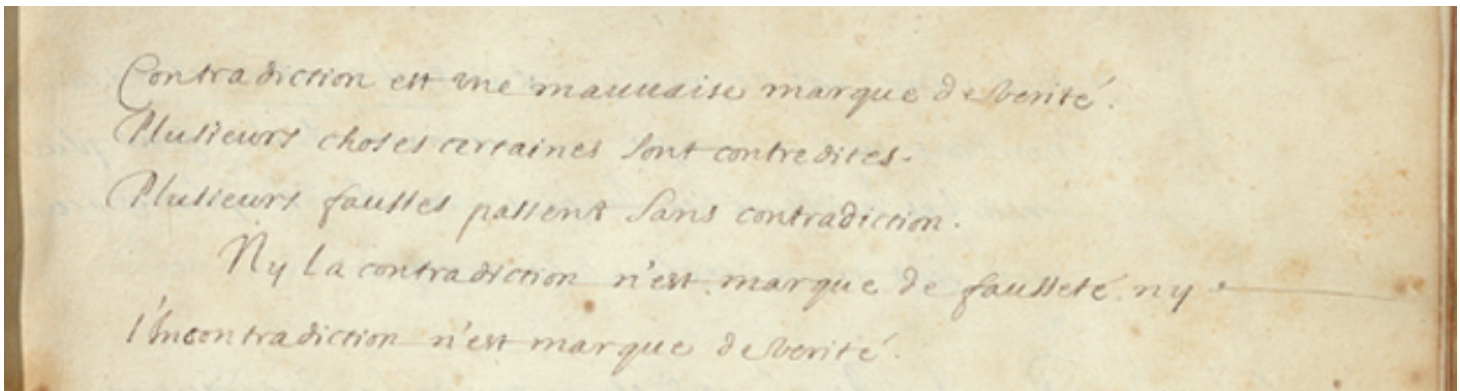 Contradiction est une mauuaise marque de verité.
Plusieurs choses certaines sont contredites.
Plusieurs fausses passent sans contradiction.
Ny la contradiction n'est marque de fausseté ny
l'incontradiction n'est marque de verité.